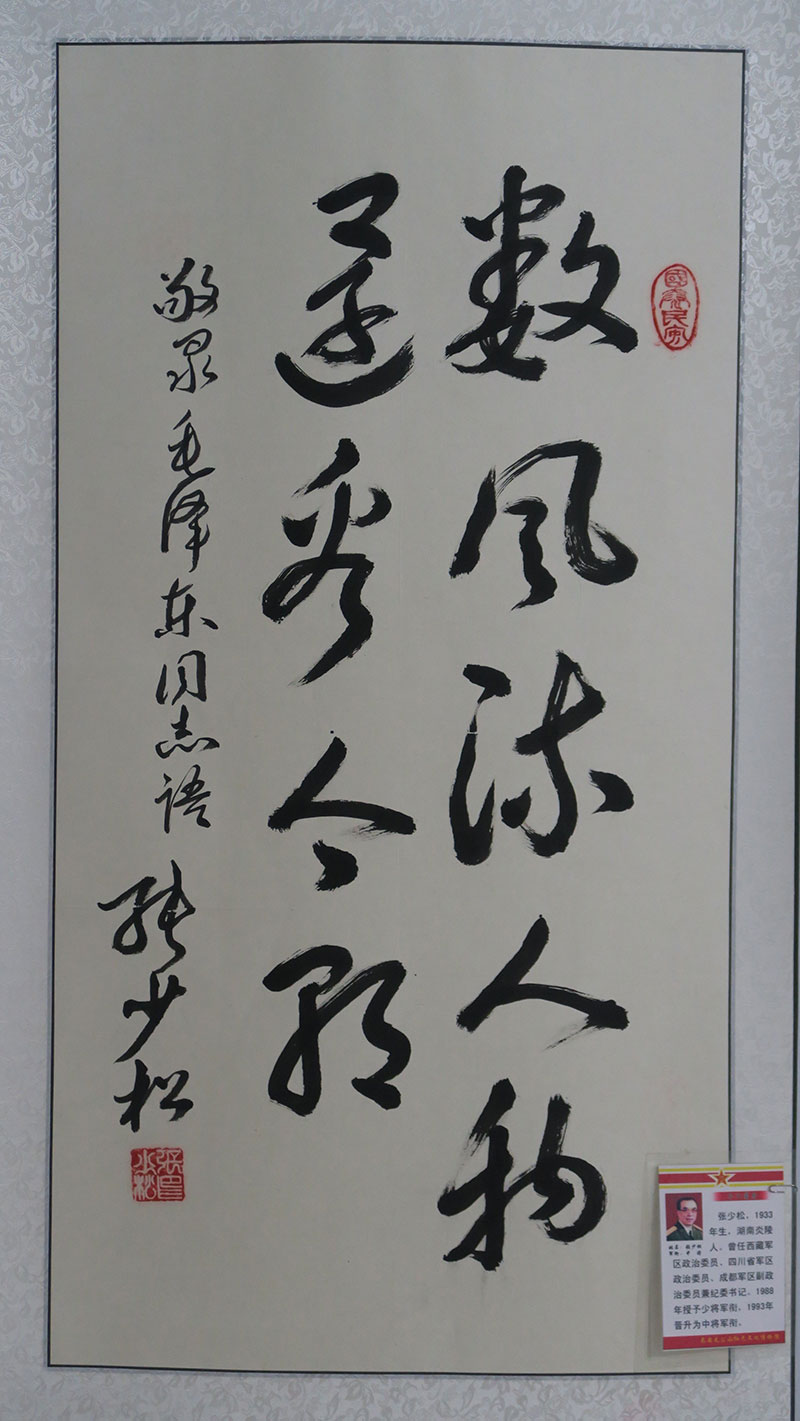 数风流人物
还看今朝
敬录毛泽东同志语
张少松
张少松印
张少松，1933
年生，湖南炎陵
人，曾任西藏军
区政治委员、四川省军区
政治委员、成都军区副政
治委员兼纪委书记。1988
年授予少将军衔，1993年
晋升为中将军衔。
姓名：张少松
军衔：中将